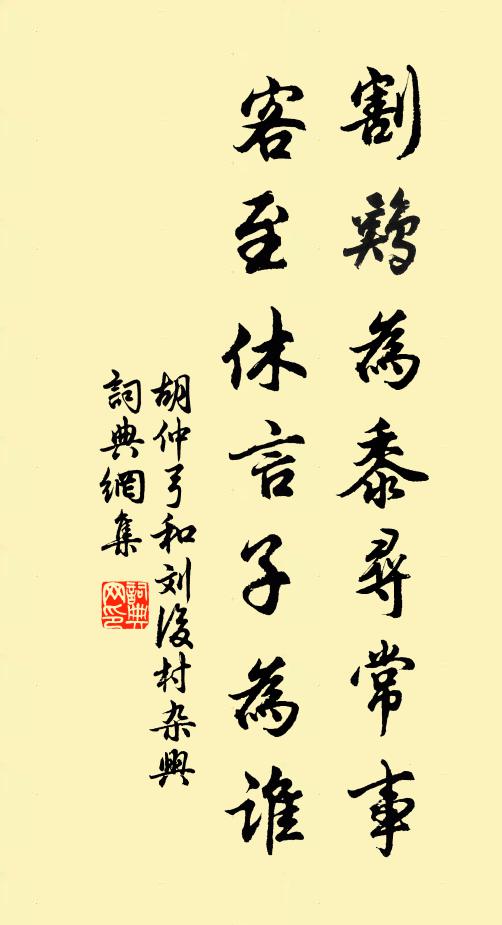 割鷄為黍尋常事
客至休言子為誰
胡仲弓和刘後村杂興
詞典網集
詞典
网印